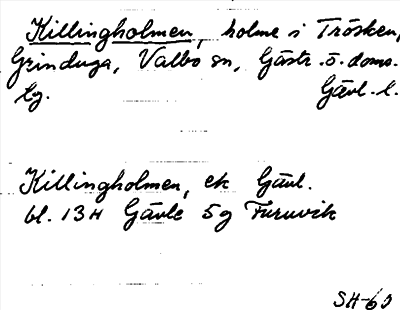 Killingholmen, holme i Trösken,
Grinduga, Valbo sn, Gästr. ö. doms.
lg. Gävl. l.
Killingholmen, ek Gävl.
bl. 13H Gävle 5g Furuvik
SH-63